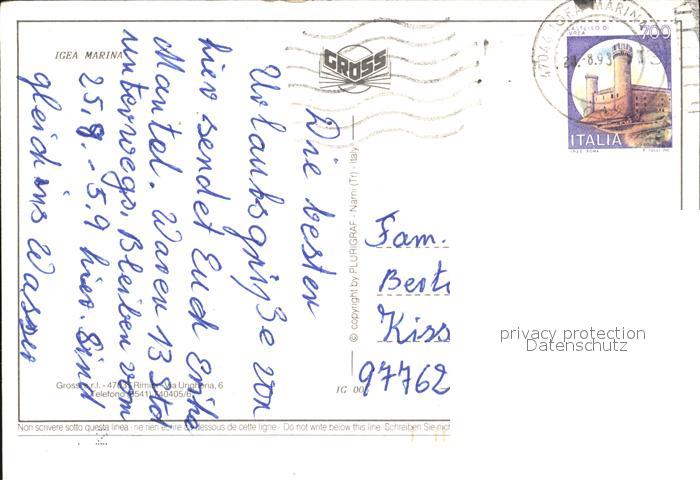 IGEA MARINA
GROSS
47044 IGEA MARINA
8.93
CASTELLO DI
IVREA
700
ITALIA
Die besten
Urlaubsgrüße von
hier sendet Euch Erika
Mantel. Waren 13 Std
unterwegs. Bleiben vom
25.8.-5.9 hier. Sind
gleich ins Wasser
© copyright by PLURIGRAF - Narni (Tr) - Italy
Fam.
Kiss
97762
privacy protection
Datenschutz
Gross s.r.l. - 47037 Rimini - Via Ungheria, 6
Telefono (0541) 740405/6
IG 00
Non scrivere sotto questa linea - ne rien écrire au dessous de cette ligne - Do not write below this line. Schreiben Sie nich